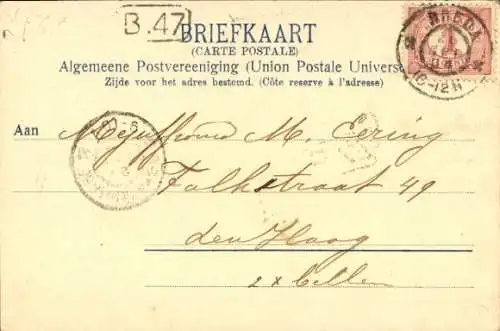 B.47
BRIEFKAART
(CARTE POSTALE)
Algemeene Postvereeniging (Union Postale Universe
Zijde voor het adres bestemd. (Côte reserve à l'adresse)
BREDA
1
04
10-12V
Aan Mejuffrouw M. Cering
Falkstraat 49
den Haag
2x bellen